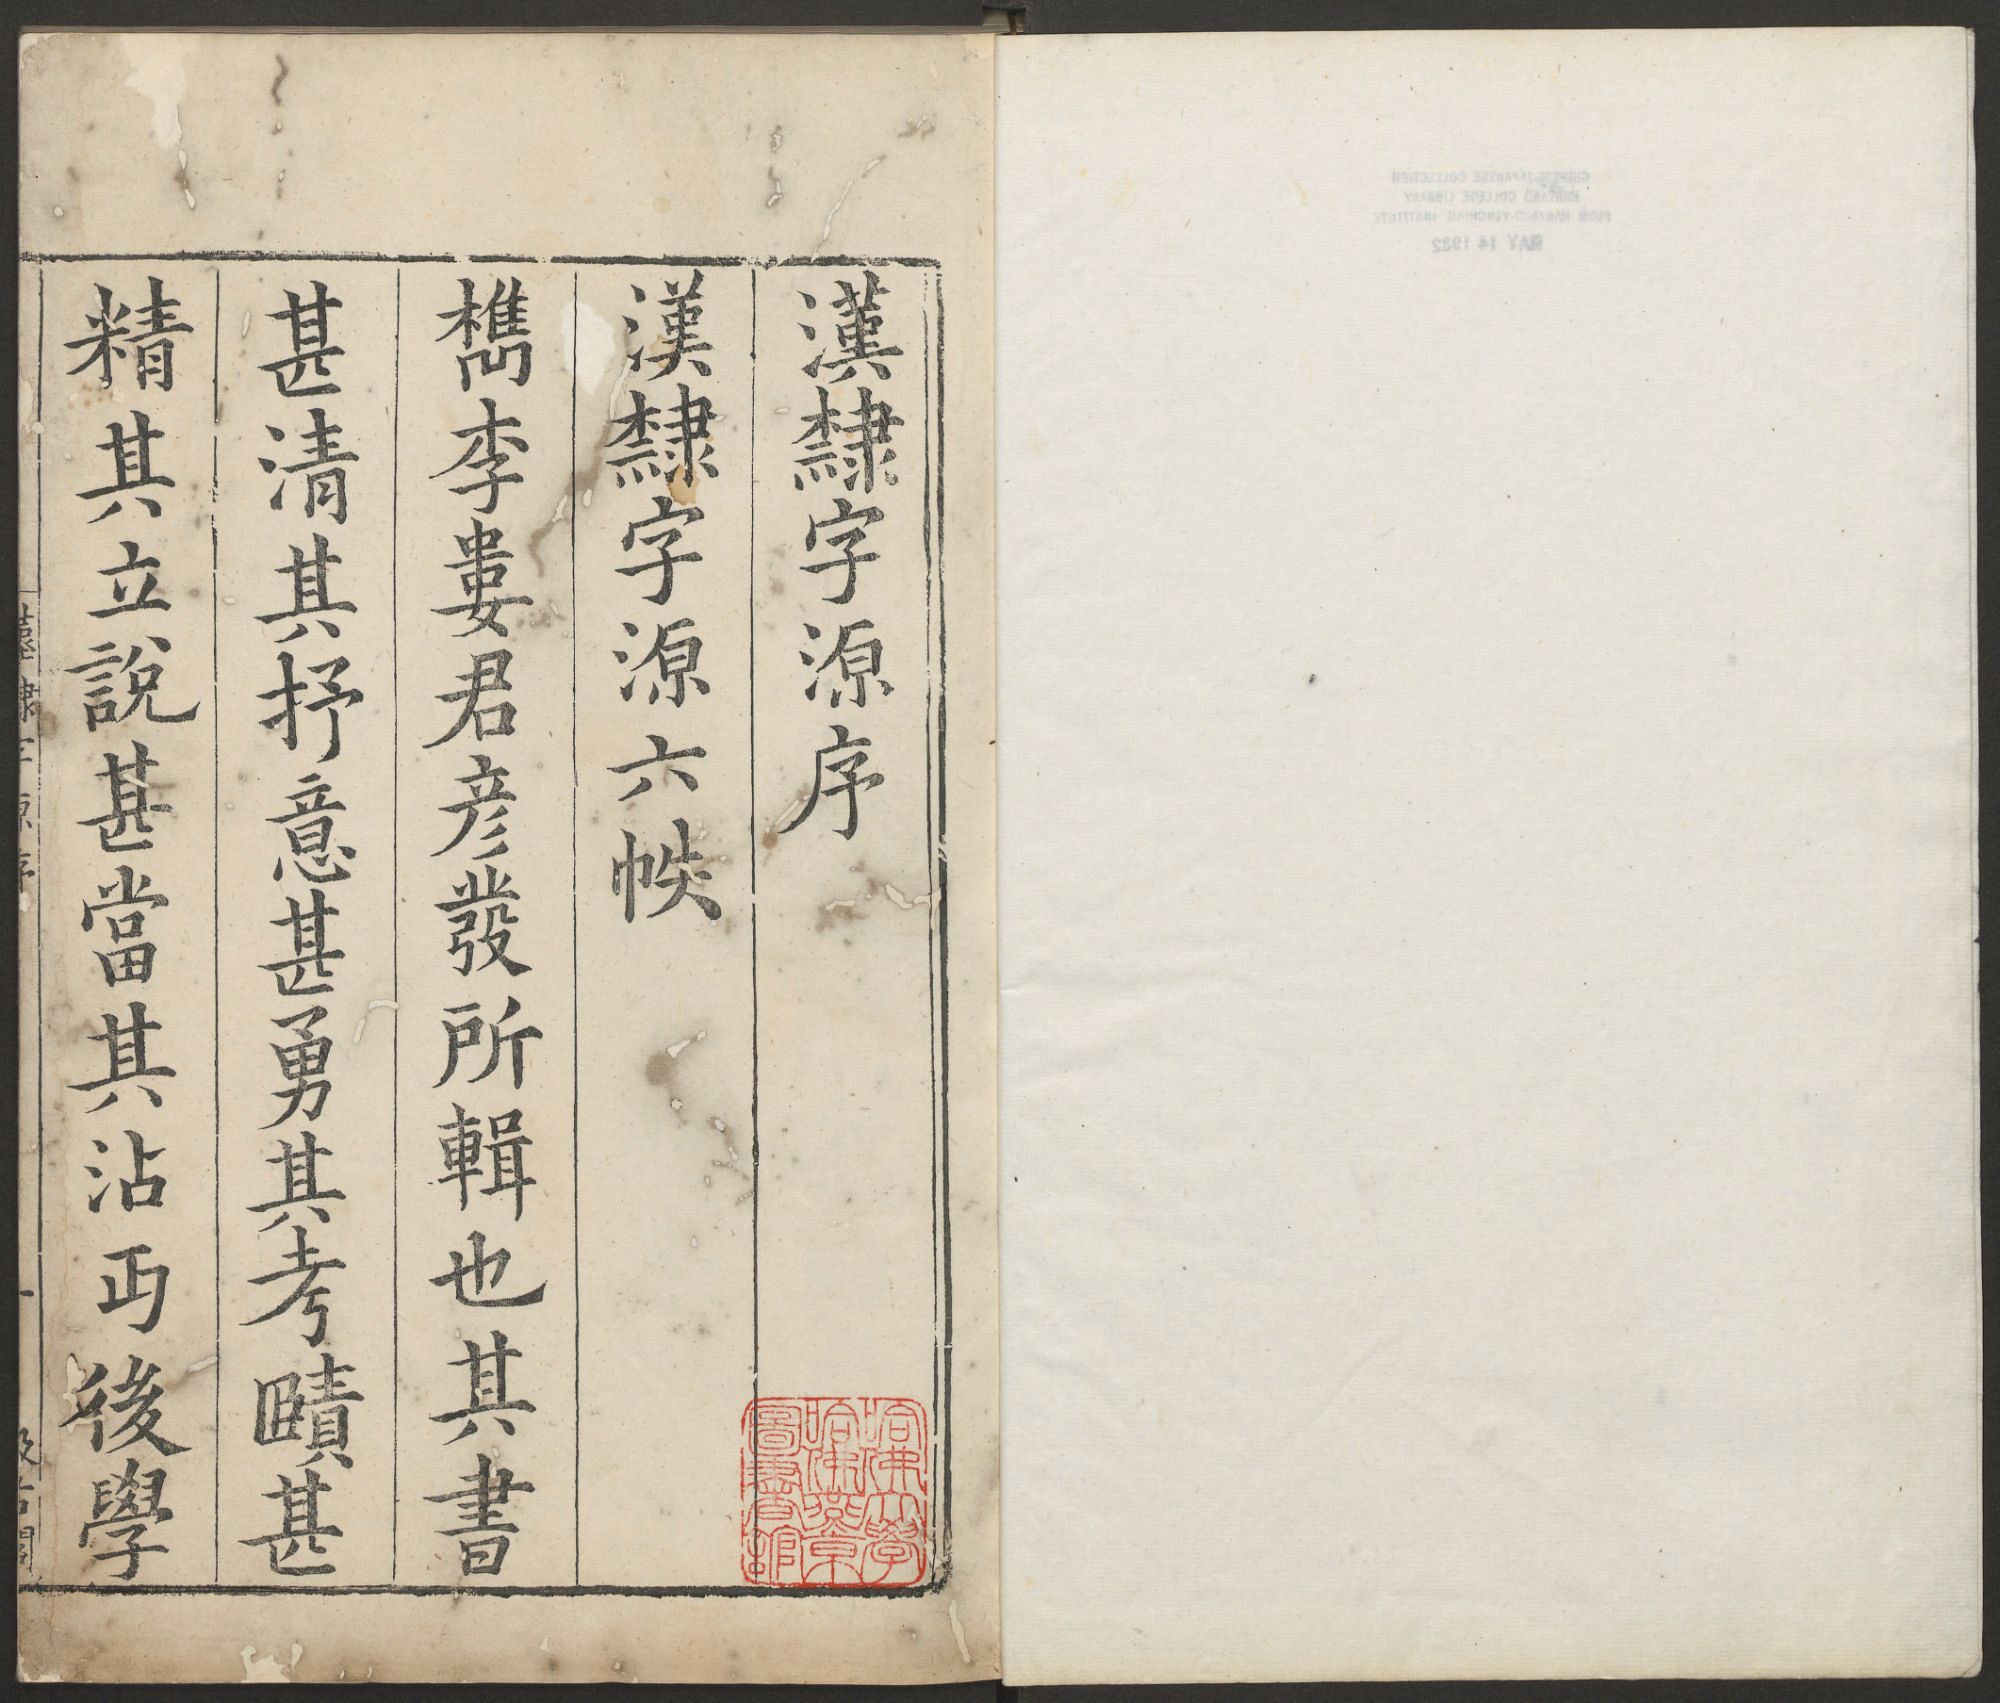 漢隸字源序
漢隸字源六帙
檇李婁君彦發所輯也其書
甚清其抒意甚勇其考賾甚
精其立說甚當其沾丐後學
哈佛大學
哈佛燕京
圖書館
CHINESE-JAPANESE COLLECTION
HARVARD COLLEGE LIBRARY
FROM HARVARD-YENCHING INSTITUTE
MAY 14 1932